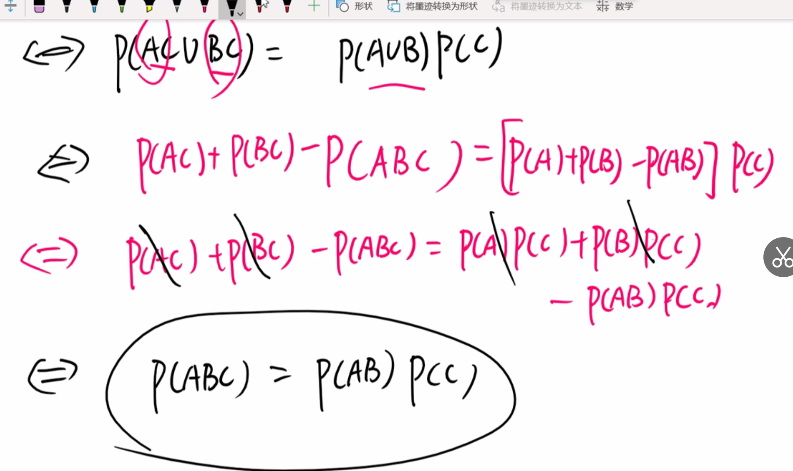 形状 将墨迹转换为形状 将墨迹转换为文本 数学
⇔ P(AC∪BC) = P(A∪B)P(C)
⇔ P(AC)+P(BC)-P(ABC)=[P(A)+P(B)-P(AB)]P(C)
⇔ P(AC)+P(BC)-P(ABC)=P(A)P(C)+P(B)P(C)
-P(AB)P(C)
⇔ P(ABC) = P(AB)P(C)